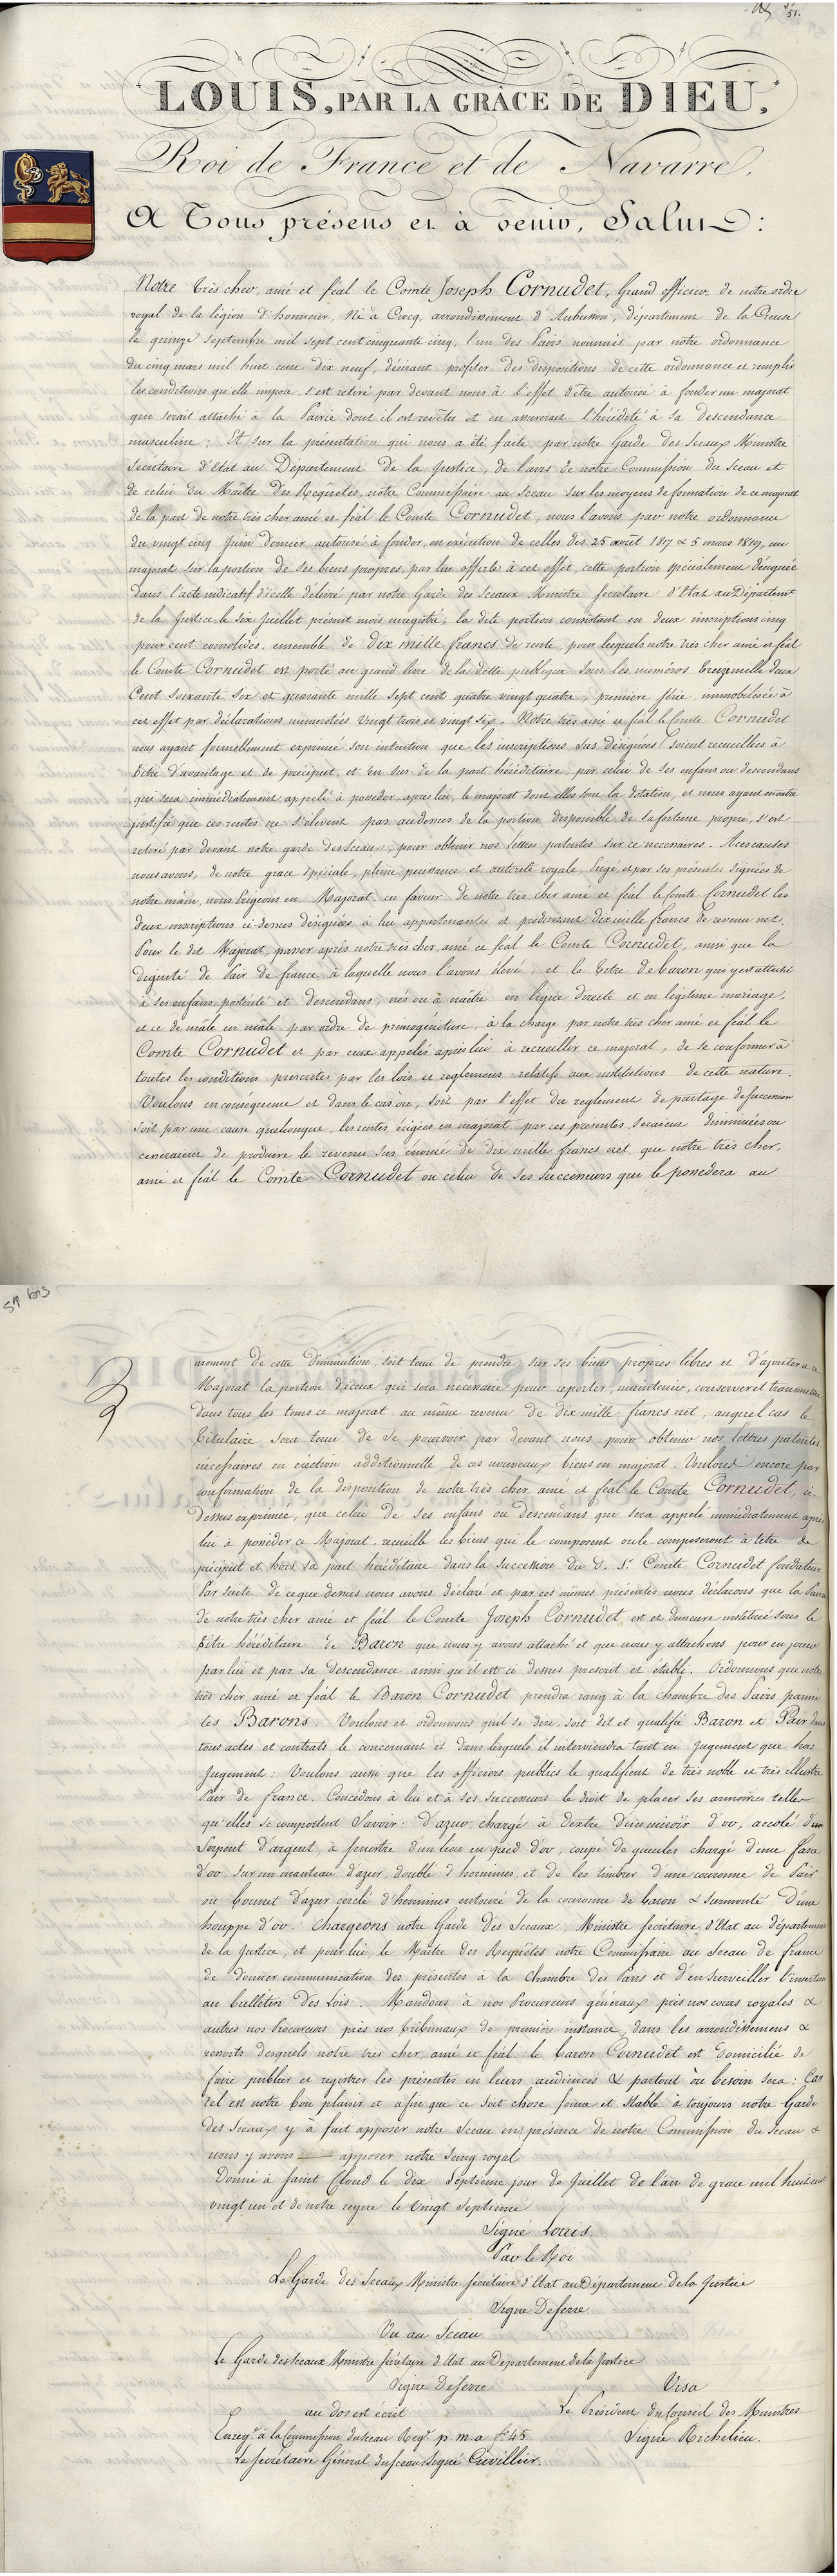 51.
LOUIS, PAR LA GRÂCE DE DIEU,
Roi de France et de Navarre,
A Tous présens et à venir, Salut :
Notre très cher, amé et féal le Comte Joseph Cornudet, Grand officier de notre ordre
royal de la légion d'honneur, Né à Crocq, arrondissement d'Aubusson, département de la Creuse
le quinze septembre mil sept cent cinquante cinq, l'un des Pairs nommés par notre ordonnance
du cinq mars mil huit cent dix neuf, désirant profiter des dispositions de cette ordonnance et remplir
les conditions qu'elle impose s'est retiré par devant nous à l'effet d'être autorisé à fonder un majorat
qui serait attaché à la Pairie dont il est revêtu et en assurerait l'hérédité à sa descendance
masculine ; Et sur la présentation qui nous a été faite par notre Garde des Sceaux Ministre
Secrétaire d'Etat au Département de la Justice, de l'avis de notre Commission du Sceau et
de celui du Maître des Requêtes, notre Commissaire au Sceau sur les moyens de formation de ce majorat
de la part de notre très cher amé et féal le Comte Cornudet, nous l'avons par notre ordonnance
du vingt cinq Juin dernier autorisé à fonder, en exécution de celles des 25 août 1817 & 5 mars 1819, un
majorat sur la portion de ses biens propres, par lui offerte à cet effet, cette portion spécialement désignée
dans l'acte indicatif d'icelle délivré par notre Garde des Sceaux Ministre Secretaire d'Etat au Départemt
de la Justice le six Juillet présent mois enregistré, la dite portion consistant en deux inscriptions cinq
pour cent consolidés, ensemble de dix mille francs de rente, pour lesquels notre très cher amé et féal
le Comte Cornudet est porté au grand livre de la dette publique sous les numéros treize mille deux
Cent soixante six et quarante mille sept cent quatre vingt quatre, première série, immobilisée à
cet effet par déclarations numerotées vingt trois et vingt six. Notre très amé et féal le Comte Cornudet
nous ayant formellement exprimé son intention que les inscriptions sus désignées soient recueillies à
titre d'avantage et de préciput, et en sus de la part héréditaire, par celui de ses enfans ou descendans
qui sera immédiatement appelé à posséder, après lui, le majorat dont elles sont la dotation, et nous ayant en outre
justifié que ces rentes ne s'élèvent pas au dessus de la portion disponible de sa fortune propre, s'est
retiré par devant notre garde des Sceaux, pour obtenir nos lettres patentes sur ce nécessaires. A ces causes
nous avons, de notre grace spéciale, pleine puissance et autorité royale Erigé et par ses présentes signées de
notre main, nous Erigeons en Majorat, en faveur de notre très cher amé et féal le Comte Cornudet les
deux inscriptions ci-dessus désignées à lui appartenantes et produisant dix mille francs de revenu net.
Pour le dit Majorat, passer après notre très cher, amé et féal le Comte Cornudet, ainsi que la
dignité de Pair de france, à laquelle nous l'avons élevé, et le titre de baron qui y est attaché
à ses enfans, postérité et descendans, nés ou à naître en ligne directe et en légitime mariage,
et ce de mâle en mâle par ordre de primogéniture, à la charge par notre très cher amé et féal le
Comte Cornudet et par ceux appelés après lui à recueillir ce majorat, de se conformer à
toutes les conditions prescrites par les lois et reglemens relatifs aux institutions de cette nature.
Voulons en conséquence et dans le cas où, soit par l'effet du reglement de partage de succession
soit par une cause quelconque, les rentes érigées en majorat par ces présentes seraient diminuées ou
cesseraient de produire le revenu sus énoncé de dix mille francs net, que notre très cher,
amé et féal le Comte Cornudet ou celui de ses successeurs qui le possedera au
51 bis
moment de cette diminution, soit tenu de prendre sur ses biens propres libres et d'ajouter a ce
Majorat la portion d'iceux qui sera necessaire pour reporter, maintenir, conserver et transmettre
dans tous les tems ce majorat au même revenu de dix mille francs net, auquel cas le
titulaire sera tenu de se pourvoir par devant nous pour obtenir nos lettres patentes
nécessaires en érection additionnelle de ces nouveaux biens en majorat. Voulons encore par
confirmation de la disposition de notre très cher, amé et féal le Comte Cornudet, ci-
dessus exprimée, que celui de ses enfans ou descendans qui sera appelé immédiatement après
lui à posséder ce Majorat, recueille les biens qui le composent ou le composeront à titre de
préciput et hors sa part héréditaire dans la succession du d. Sr. Comte Cornudet fondateur
Par suite de ce que dessus nous avons déclaré et par ces mêmes présentes nous déclarons que la Pairie
de notre très cher amé et féal le Comte Joseph Cornudet, est et demeure instituée sous le
titre héréditaire de Baron que nous y avons attaché et que nous y attachons pour en jouir
par lui et par sa descendance ainsi qu'il est ci dessus prescrit et établi. Ordonnons que notre
très cher amé et féal le Baron Cornudet prendra rang à la Chambre des Pairs parmi
les Barons. Voulons et ordonnons qu'il se dise, soit dit et qualifié Baron et Pair dans
tous actes et contrats le concernant et dans lesquels il interviendra tant en jugement que hors
Jugement : Voulons aussi que les officiers publics le qualifient de très noble et très illustre
Pair de france. Concédons à lui et à ses successeurs le droit de placer ses armoiries telles
qu'elles se comportent Savoir : d'azur, chargé à dextre d'un miroir d'or, accolé d'un
Serpent d'argent, à senestre d'un lion en pied d'or, coupé de gueules chargé d'une fasce
d'or, sur un manteau d'azur, doublé d'hermines, et de les timbrer d'une couronne de Pair
ou bonnet d'azur cerclé d'hermines entouré de la couronne de baron & surmonté d'une
houppe d'or. Chargeons notre Garde des Sceaux, Ministre Secrétaire d'Etat au département
de la Justice, et pour lui, le Maître des Requêtes notre Commissaire au Sceau de france
de donner communication des présentes à la Chambre des Pairs et d'en surveiller l'insertion
au bulletin des Lois. Mandons à nos Procureurs généraux près nos cours royales &
autres nos Procureurs près nos tribunaux de première instance, dans les arrondissemens &
ressorts desquels notre très cher, amé et féal le baron Cornudet est domicilié de
faire publier et registrer les présentes en leurs audiences & partout où besoin sera : Car
tel est notre bon plaisir et afin que ce soit chose ferme et stable à toujours notre Garde
des Sceaux y à fait apposer notre Sceau en présence de notre Commission du Sceau &
nous y avons apposer notre Seing royal
Donné à Saint Cloud le dix Septième jour de Juillet de l'an de grace mil huit cent
vingt un et de notre regne le vingt septième
Signé Louis.
Par le Roi
Le Garde des Sceaux Ministre Secrétaire d'Etat au Département de la Justice
Signé De Serre
Vu au Sceau
Le Garde des Sceaux Ministre Secrétaire d'Etat au Département de la Justice
Signé De Serre
Visa
au dos est écrit
Le Président du Conseil des Ministres
Enregé. à la Commission du Sceau Regr. p. m. a fo 45
Signé Richelieu.
Le Secrétaire Général du Sceau signé Cuvillier.